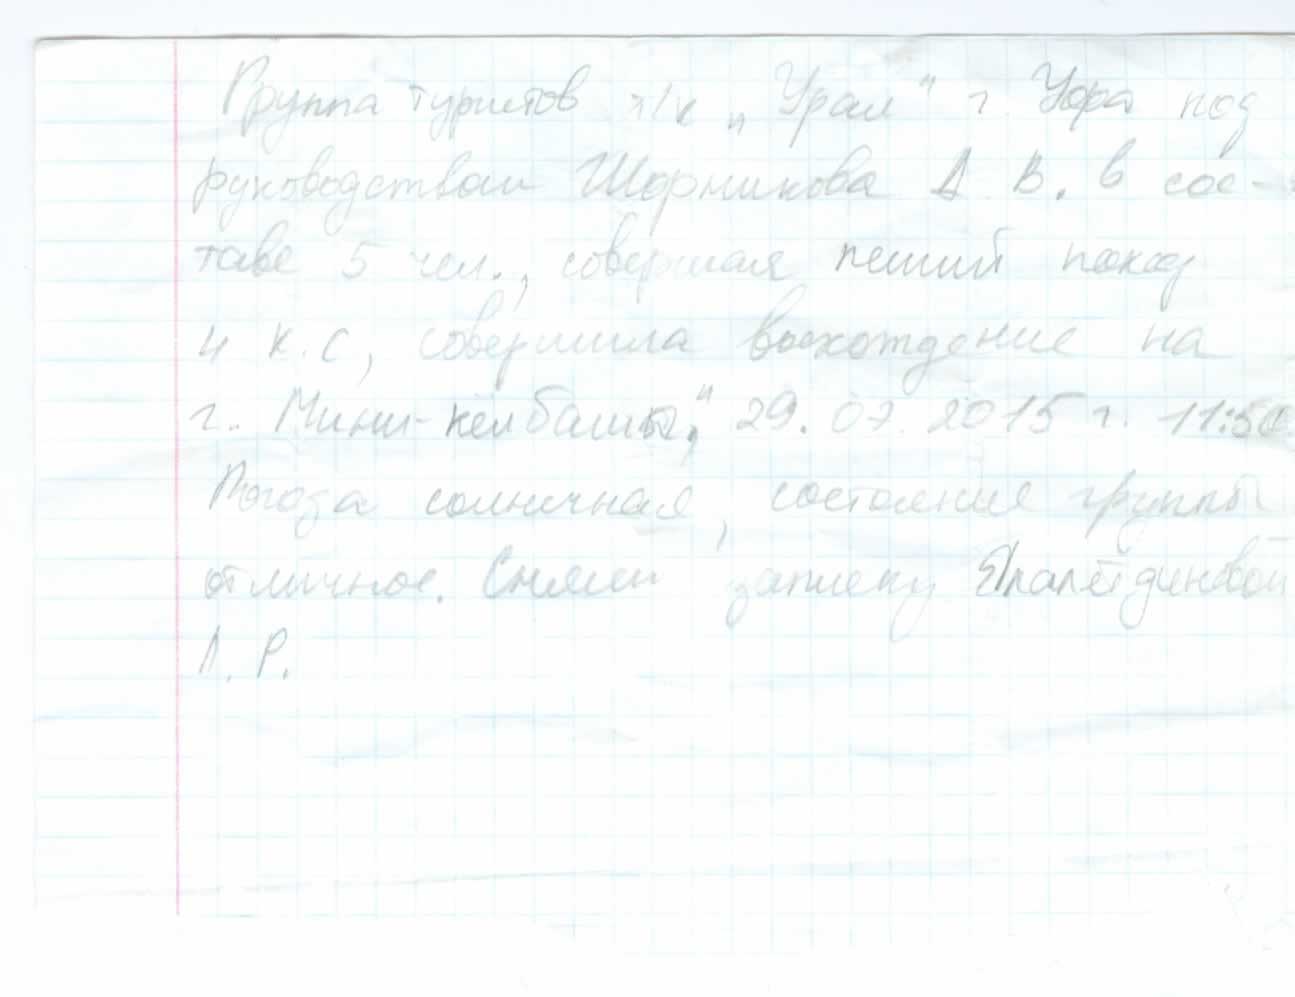 Группа туристов т/к „Урал" г. Уфа под
руководством Шормикова А. В. в сос-
таве 5 чел., совершая пеший поход
4 к.с, совершила восхождение на
г. Мини-келбашы," 29.07.2015 г. 11:50
Погода солнечная, состояние группы
отличное. Сняли записку Ялалетдиновой
Л. Р.